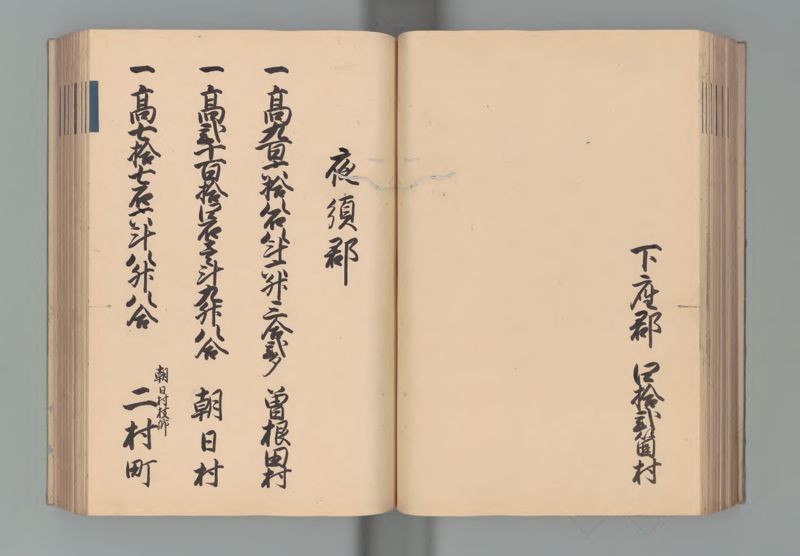 下座郡 四拾弐箇村
夜須郡
一高九百六拾八石八斗六升三合弐夕 曽根田村
一高弐千百拾四石壱斗九升八合 朝日村
朝日村枝郷
一高七拾七石六斗八升八合 二村町